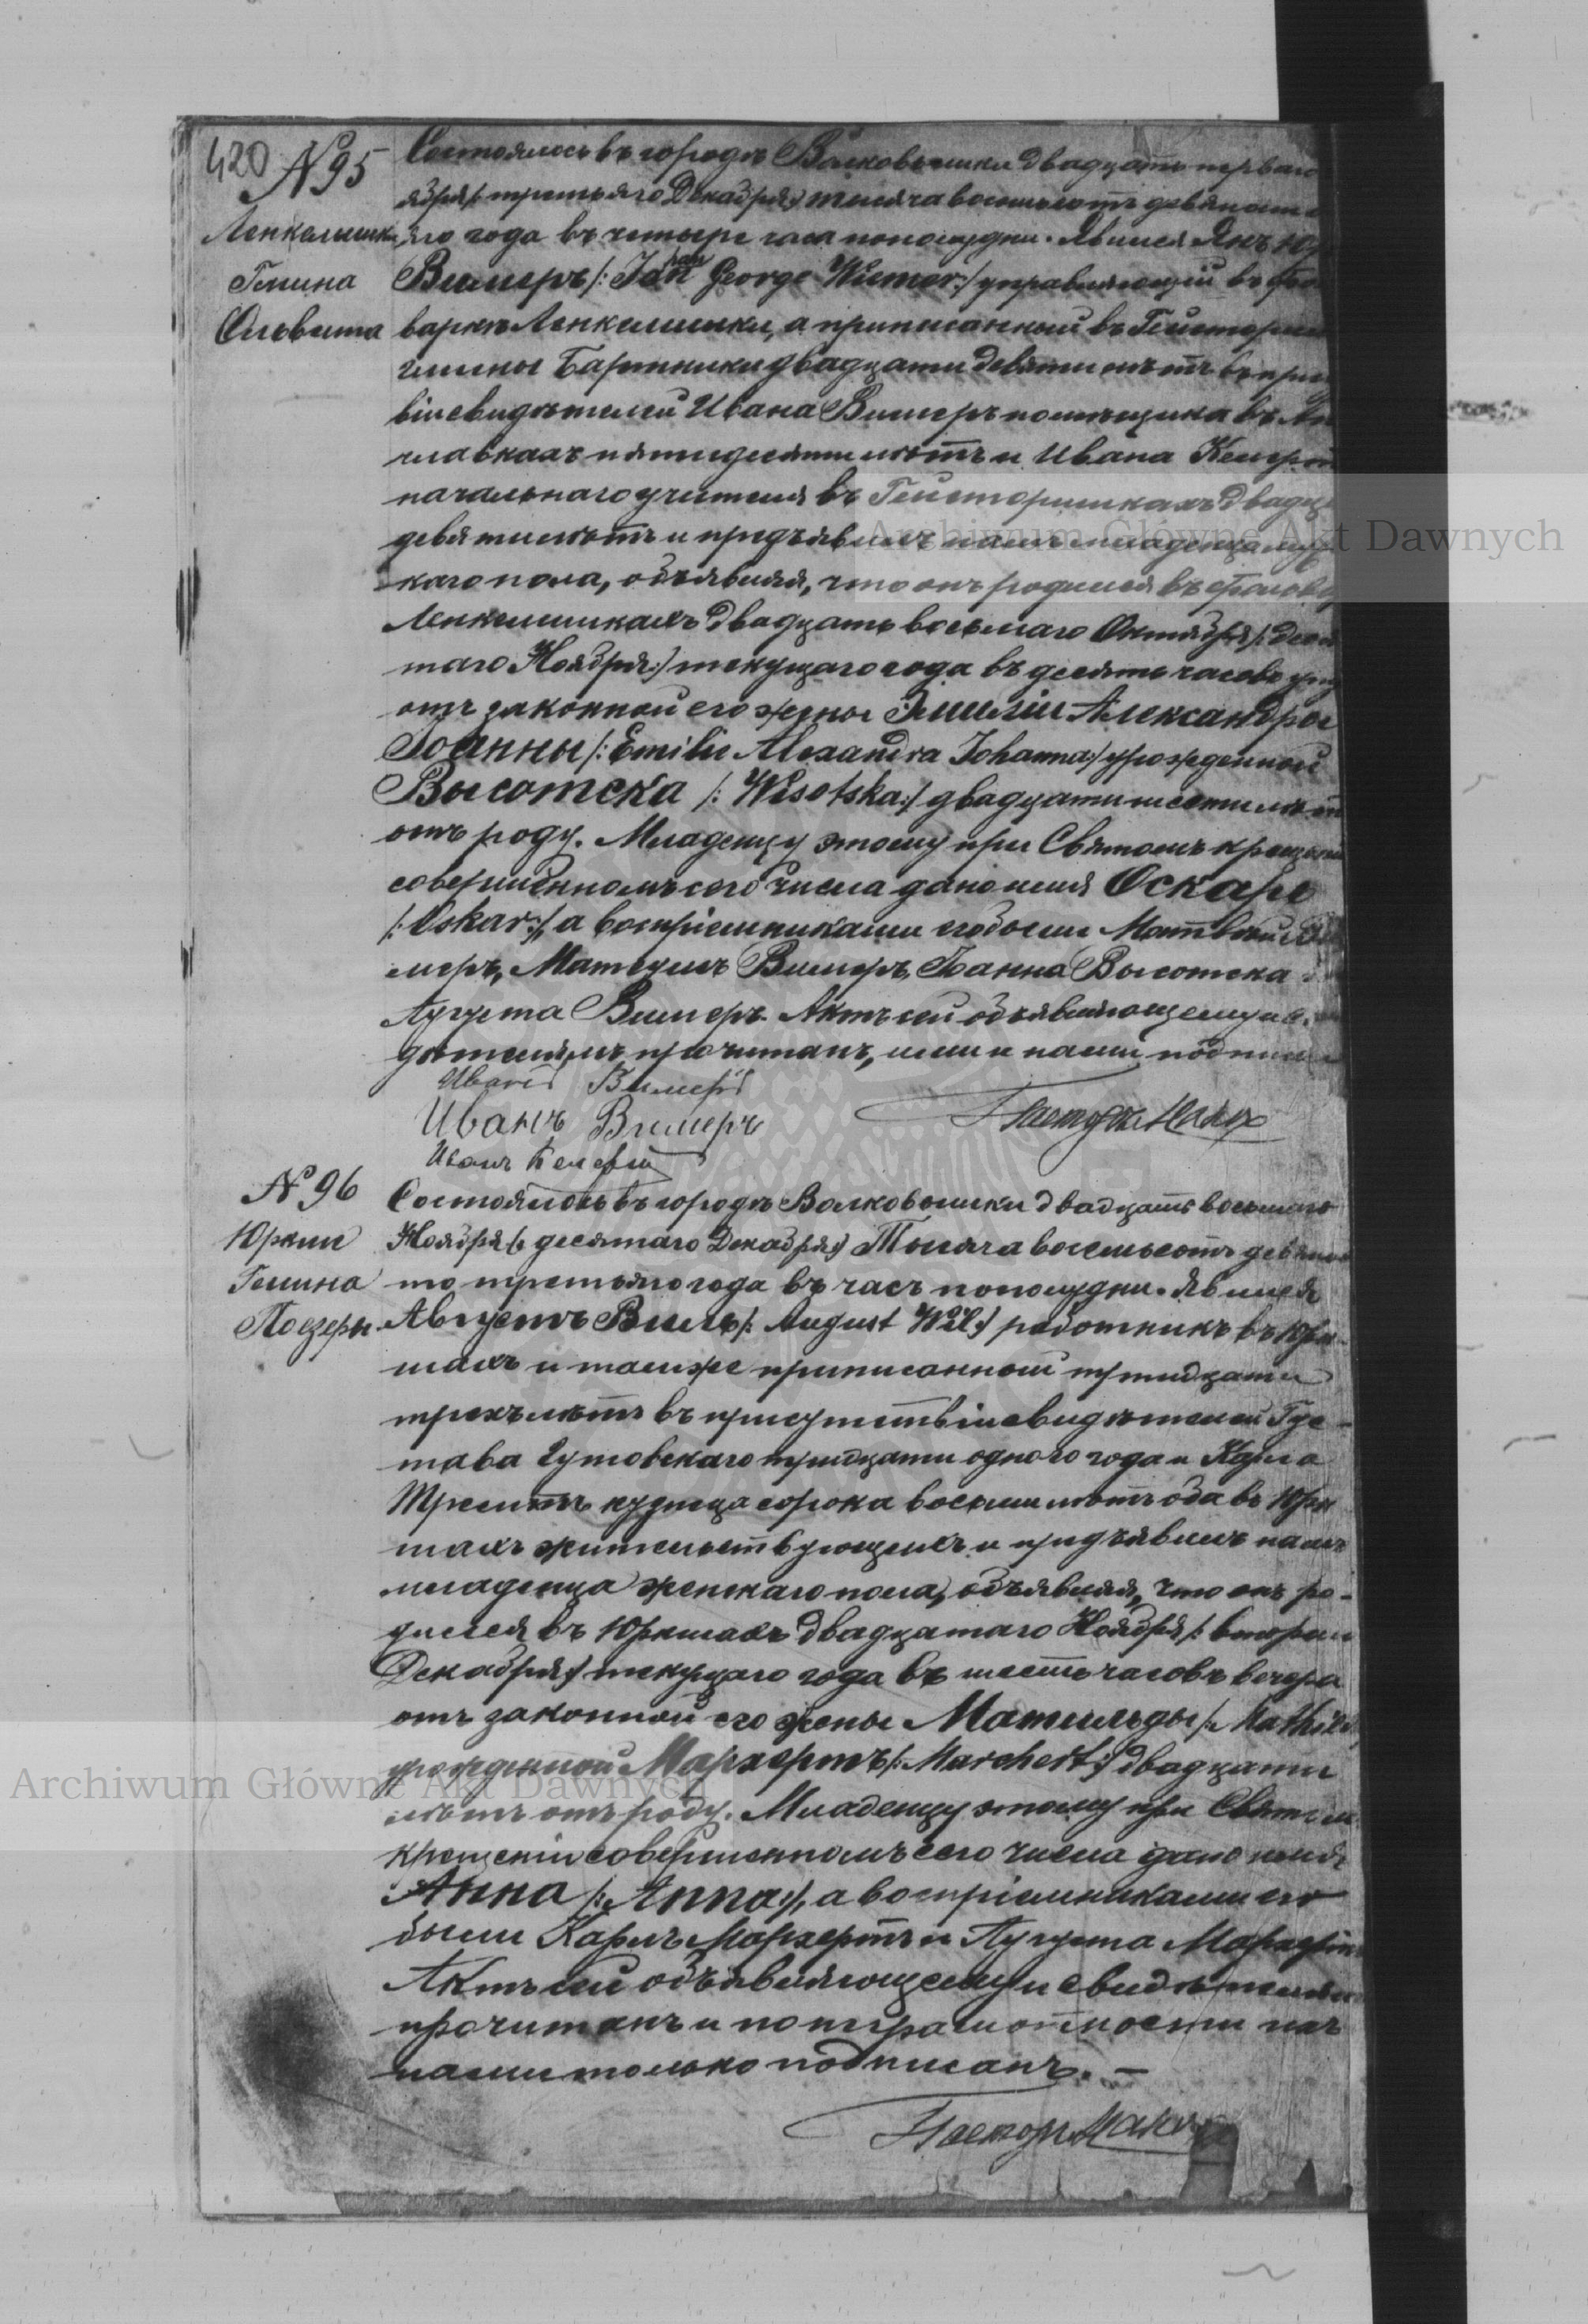 420 N 95
Состоялось въ городѣ Волковышки двадцать перваго
ября /: третьяго Декабря :/ тысяча восемьсотъ девяносто
Ленкелишки
яго года въ четыре часа пополудни. Явился Янъ
Гмина
Вимеръ /: Johan George Wiemer :/ управляющій въ
Ольвита
варкѣ Ленкелишки, а приписанный въ
гмины Бартники двадцати девяти лѣтъ въ при
віи свидѣтелей Ивана Вимеръ помѣщика въ
пятидесяти лѣтъ и Ивана
начальнаго учителя въ Гейсторишкахъ двадц
девяти лѣтъ и предъявилъ намъ младенца муж
каго пола, объявляя, что онъ родился въ фольва
Ленкелишкахъ двадцать восьмаго Октября /: девя
таго Ноября :/ текущаго года въ десять часовъ
отъ законной его жены Эмиліи Александры
Іоанны /: Emilie Alexandra Johanna :/ урожденной
Высотска /: Wisotska :/ двадцати шести лѣтъ
отъ роду. Младенцу этому при Святомъ крещеніи
совершенномъ сего числа дано имя Оскаръ
/: Oskar :/, а воспріемниками его были Матвѣй
меръ, Вимеръ, Іоанна Высотска
Аугуста Вимеръ. Актъ сей объявляющему и
дѣтелямъ прочитанъ, ими и нами подписанъ
Иванъ Вимеръ
Иванъ Вимеръ
Пасторъ
Иванъ
N 96
Состоялось въ городѣ Волковышки двадцать восьмаго
Юркши
Ноября /: десятаго Декабря :/ Тысяча восемьсотъ девянос
Гмина
то третьяго года въ часъ пополудни. Явился
Поезеры.
Августъ Виль /: August Wil :/ работникъ въ Юрк-
шахъ и тамже приписанный тридцати
трехъ лѣтъ въ присутствіи свидѣтелей Гус-
тава Гутовскаго тридцати одного года и Карла
кузнеца сорока восьми лѣтъ оба въ Юрк
шахъ жительствующихъ и предъявилъ намъ
младенца женскаго пола, объявляя, что онъ ро-
дился въ Юркшахъ двадцатаго Ноября /: втораго
Декабря :/ текущаго года въ шесть часовъ вечера
отъ законной его жены Матильды /: Mathilde
урожденной Мархертъ /: Marchert :/ двадцати
лѣтъ отъ роду. Младенцу этому при Святомъ
крещеніи совершенномъ сего числа дано имя
Анна /: Anna :/, а воспріемниками его
были Карлъ Мархертъ и Аугуста Мархертъ
Актъ сей объявляющему и свидѣтелямъ
прочитанъ и по неграмотности ихъ
нами только подписанъ. —
Пасторъ
Archiwum Główne Akt Dawnych
Archiwum Główne Akt Dawnych